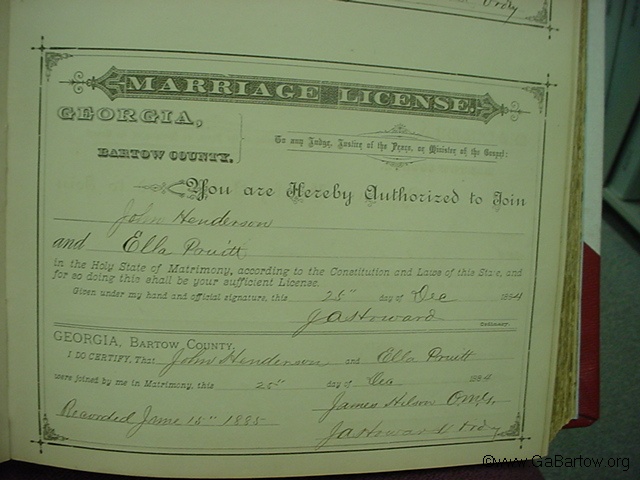 MARRIAGE LICENSE.
GEORGIA,
BARTOW COUNTY.
To any Judge, Justice of the Peace, or Minister of the Gospel:
You are Hereby Authorized to Join
John Henderson
and Ella Pruitt
in the Holy State of Matrimony, according to the Constitution and Laws of this State, and
for so doing this shall be your sufficient License.
Given under my hand and official signature, this 25" day of Dec 1884
J A Howard ORDINARY.
GEORGIA, BARTOW COUNTY.
I DO CERTIFY, That John Henderson and Ella Pruitt
were joined by me in Matrimony, this 25" day of Dec 1884
James Hilson
Recorded June 15" 1885
J A Howard Ordy
©www.GaBartow.org